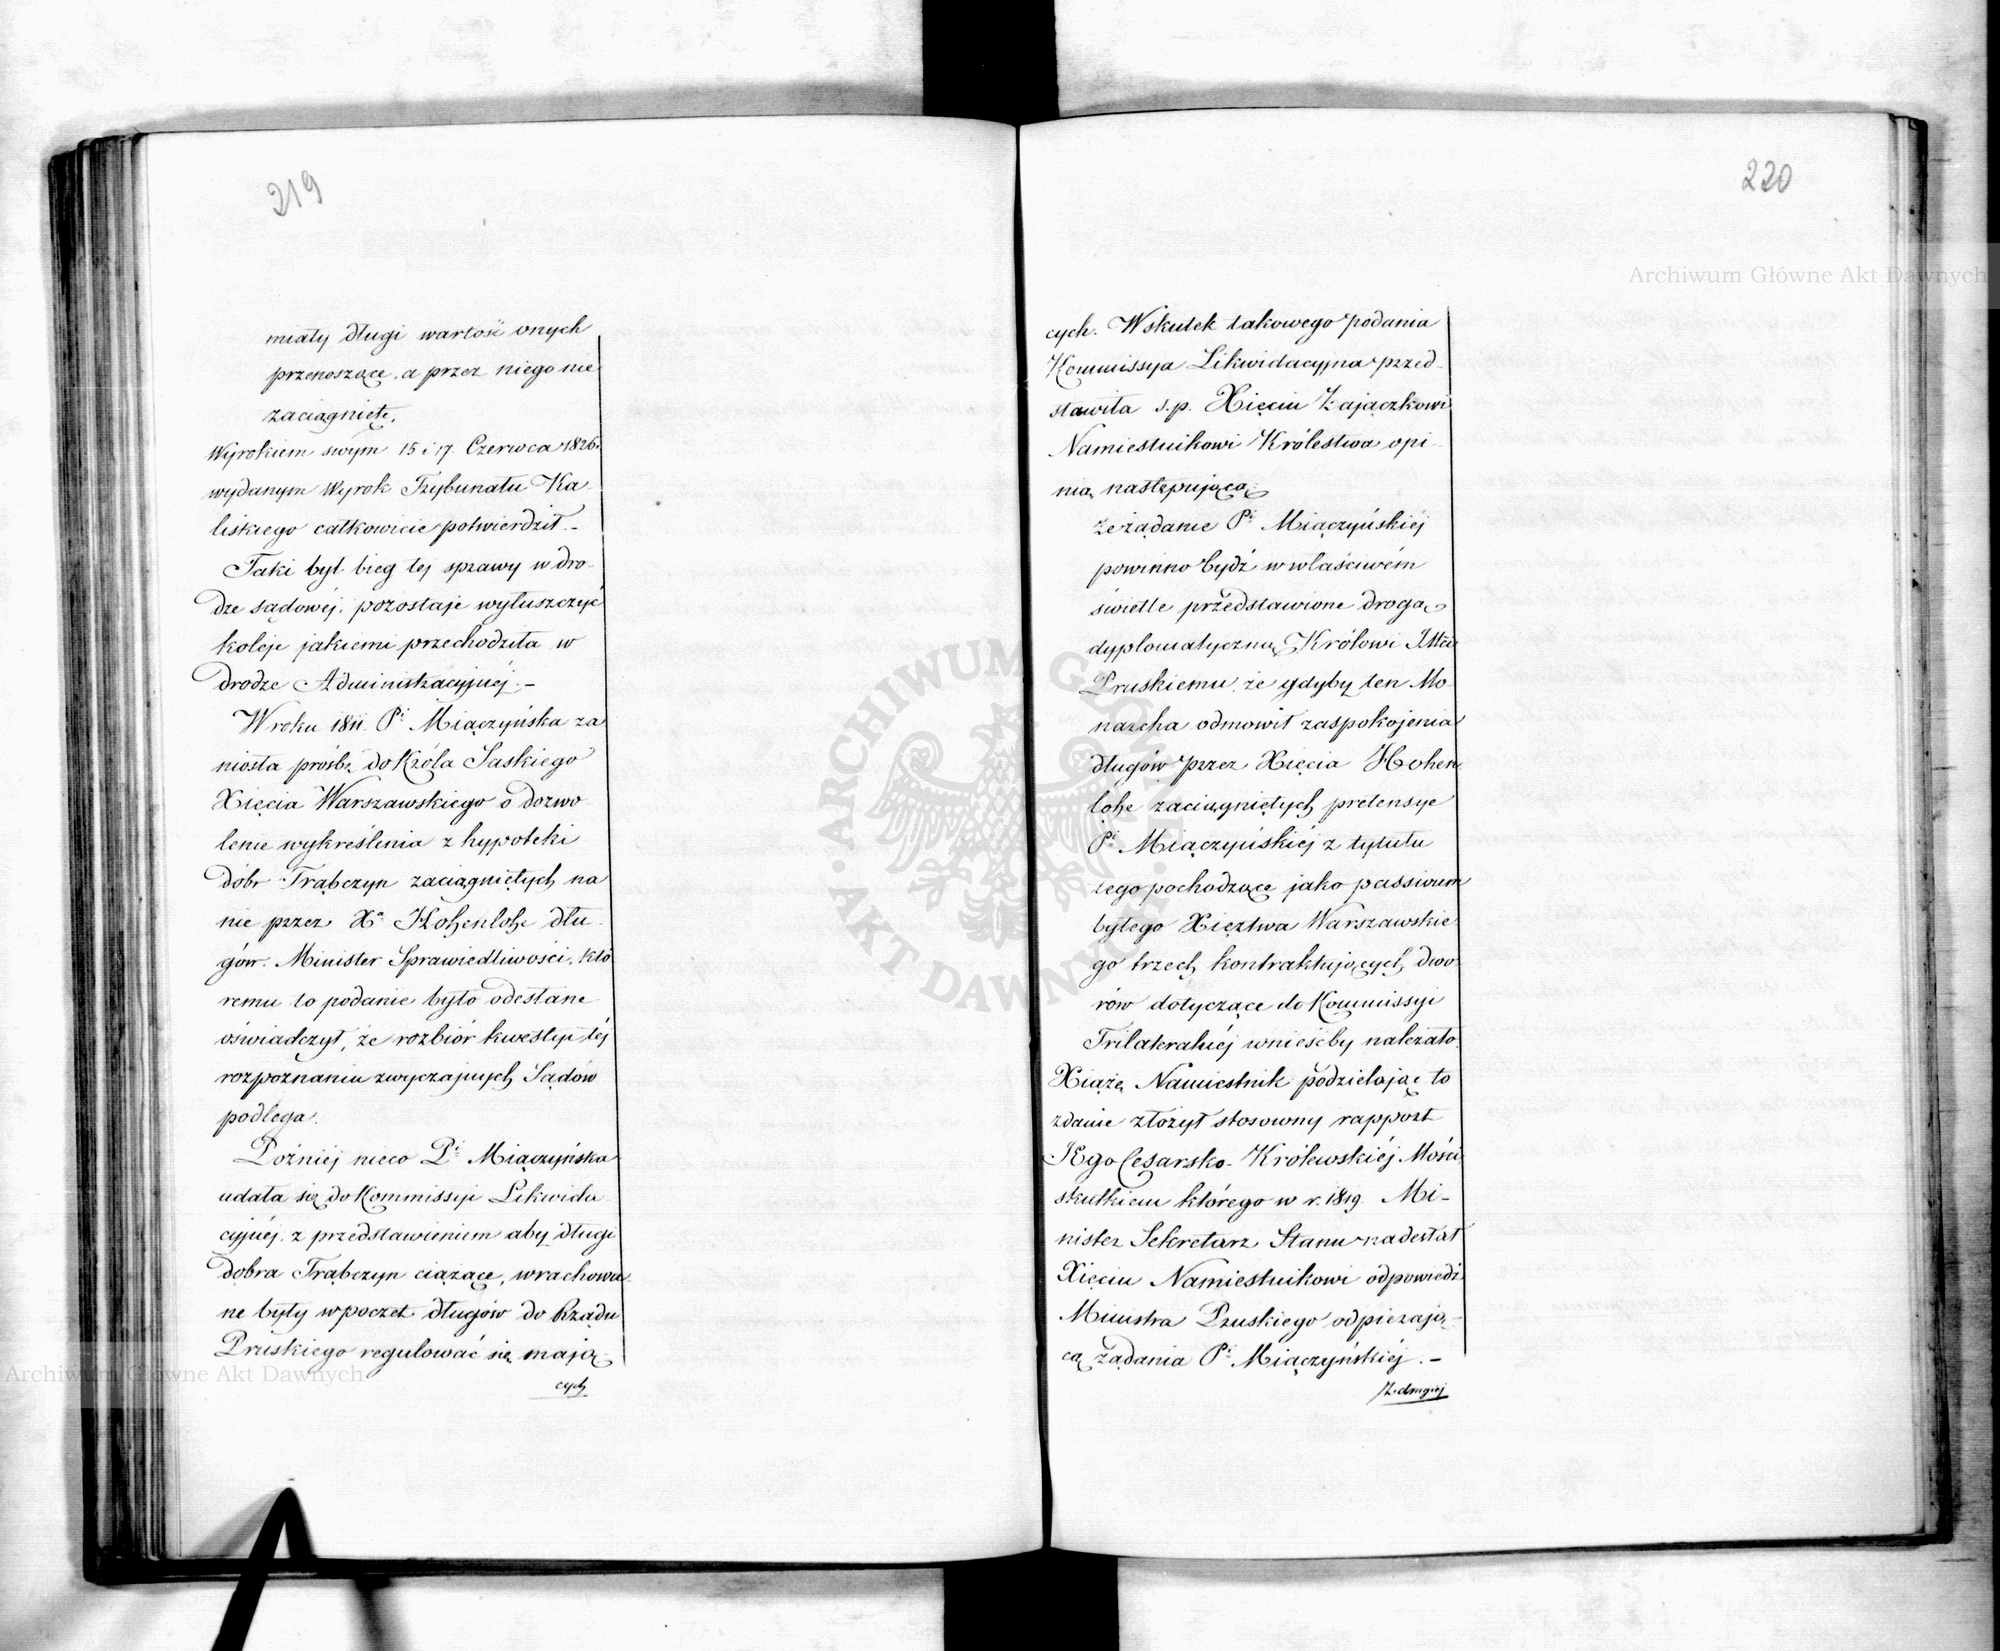 219
miały długi wartość onych
przenoszące, a przez niego nie
zaciągnięte.
Wyrokiem swym 15 i 17 Czerwca 1826.
wydanym Wyrok Trybunału Ka-
liskiego całkowicie potwierdził. –
Taki był bieg tej sprawy w dro-
dze sądowéj, pozostaje wyłuszczyć
koleje jakiemi przechodziła w
drodze Administracyjnéj. –
W roku 1811. Pi Miączyńska za
niosła prośbę do Króla Saskiego
Xięcia Warszawskiego o dozwo-
lenie wykreślenia z hypoteki
dóbr Trąbczyn zaciągniętych na
nie przez Xa Hohenlohe dłu-
gów. Minister Sprawiedliwości, któ
remu to podanie było odesłane
oświadczył, że rozbiór kwestyi téj
rozpoznaniu zwyczajnych Sądów
podlega.
Poźniej nieco Pi Miączyńska
udała się do Kommissyi Likwida
cyjnéj, z przedstawieniem aby długi
dobra Trąbczyn ciążące, wrachowa-
ne były w poczet długów do Rządu
Pruskiego regulować się mają-
cych
220
cych. Wskutek takowego podania
Kommissya Likwidacyjna przed-
stawiła s.p. Xięciu Zajączkowi
Namiestnikowi Królestwa opi-
nią następującą:
że żądanie Pi Miączyńskiéj
powinno bydź w właściwém
świetle przedstawione drogą
dyplomatyczną Królowi JMci
Pruskiemu, że gdyby ten Mo-
narcha odmowił zaspokojenia
długów przez Xięcia Hohen
lohe zaciągniętych pretensye
Pi Miączyńskiéj z tytułu
tego pochodzące jako passivum
byłego Xięztwa Warszawskie
go trzech kontraktujących dwo-
rów dotyczące do Kommissyi
Trilateralnéj wnieśćby należało.
Xiąże Namiestnik podzielając to
zdanie złożył stosowny rapport
JEgo Cesarsko-Królewskiéj Mości
skutkiem którego w r. 1819. Mi-
nister Sekretarz Stanu nadesłał
Xięciu Namiestnikowi odpowiedź
Ministra Pruskiego odpierają-
cą żądania Pi Miączyńskiéj. –
Z drugiej
Archiwum Główne Akt Dawnych
Archiwum Główne Akt Dawnych
ARCHIWUM GŁÓWNE AKT DAWNYCH